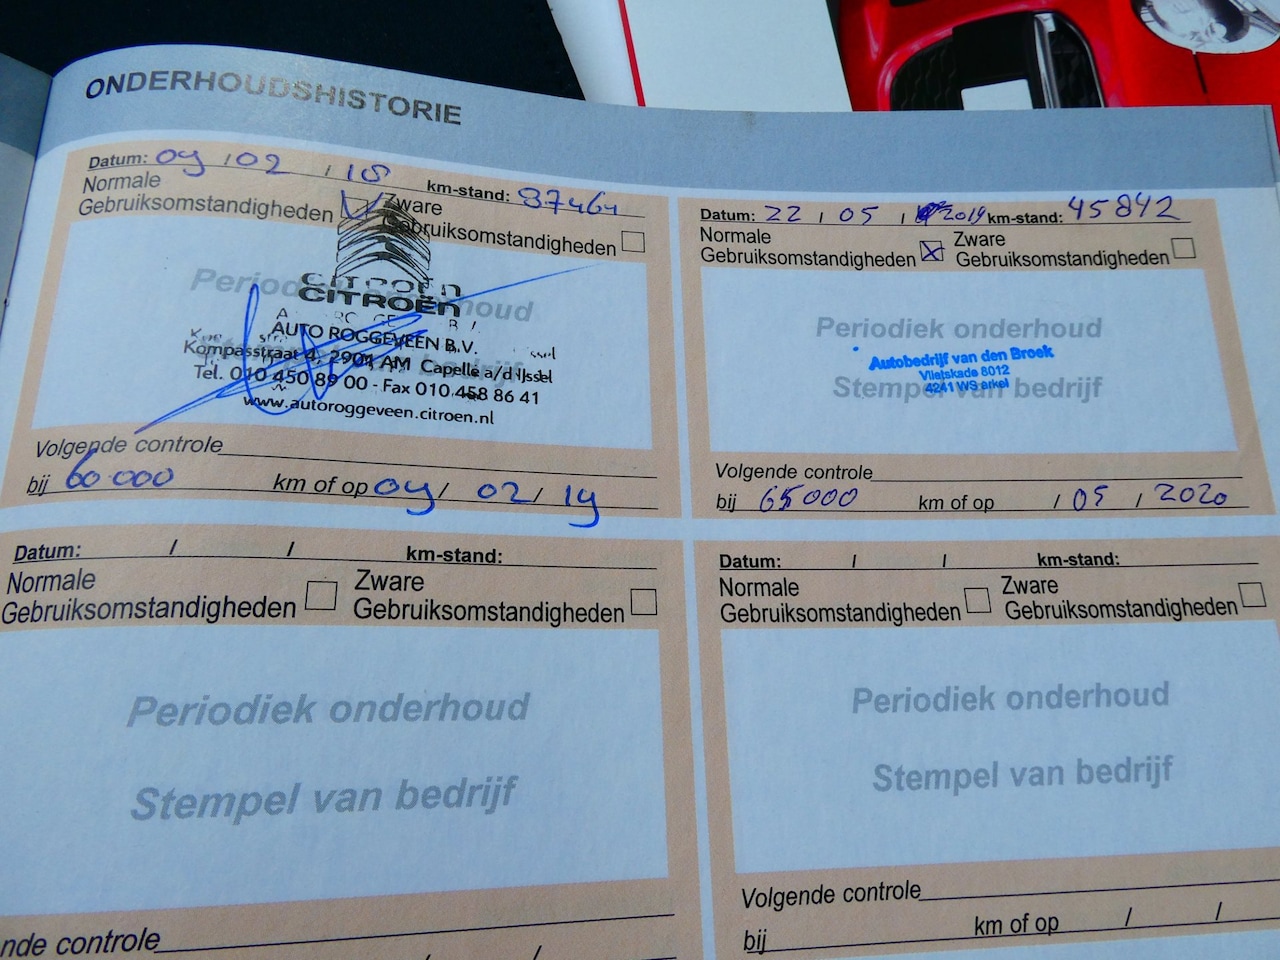 ONDERHOUDSHISTORIE
Datum: 09 / 02 / 18 km-stand: 37464
Normale
Gebruiksomstandigheden
Zware
Gebruiksomstandigheden
Periodiek onderhoud
CITROËN
CITROËN
AUTO ROGGEVEEN B.V.
Kompasstraat 4, 2901 AM Capelle a/d IJssel
Tel. 010 450 89 00 - Fax 010 458 86 41
www.autoroggeveen.citroen.nl
Volgende controle
bij 60.000 km of op 09 / 02 / 19
Datum: 22 / 05 / 2019 km-stand: 45842
Normale
Gebruiksomstandigheden
Zware
Gebruiksomstandigheden
Periodiek onderhoud
Autobedrijf van den Broek
Vlietskade 8012
4241 WS arkel
Stempel van bedrijf
Volgende controle
bij 65000 km of op / 05 / 2020
Datum: / / km-stand:
Normale
Gebruiksomstandigheden
Zware
Gebruiksomstandigheden
Periodiek onderhoud
Stempel van bedrijf
nde controle
Datum: / / km-stand:
Normale
Gebruiksomstandigheden
Zware
Gebruiksomstandigheden
Periodiek onderhoud
Stempel van bedrijf
Volgende controle
bij km of op / /